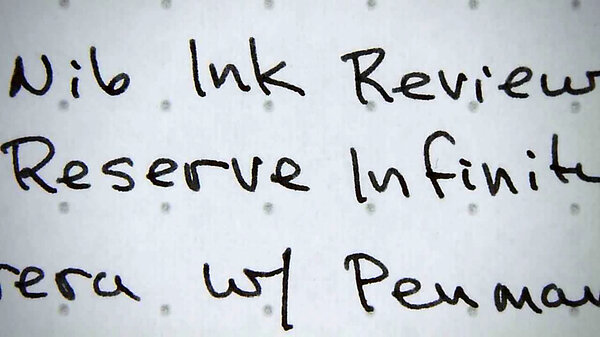 Nib Ink Review
Reserve Infinite
rera w/ Penman